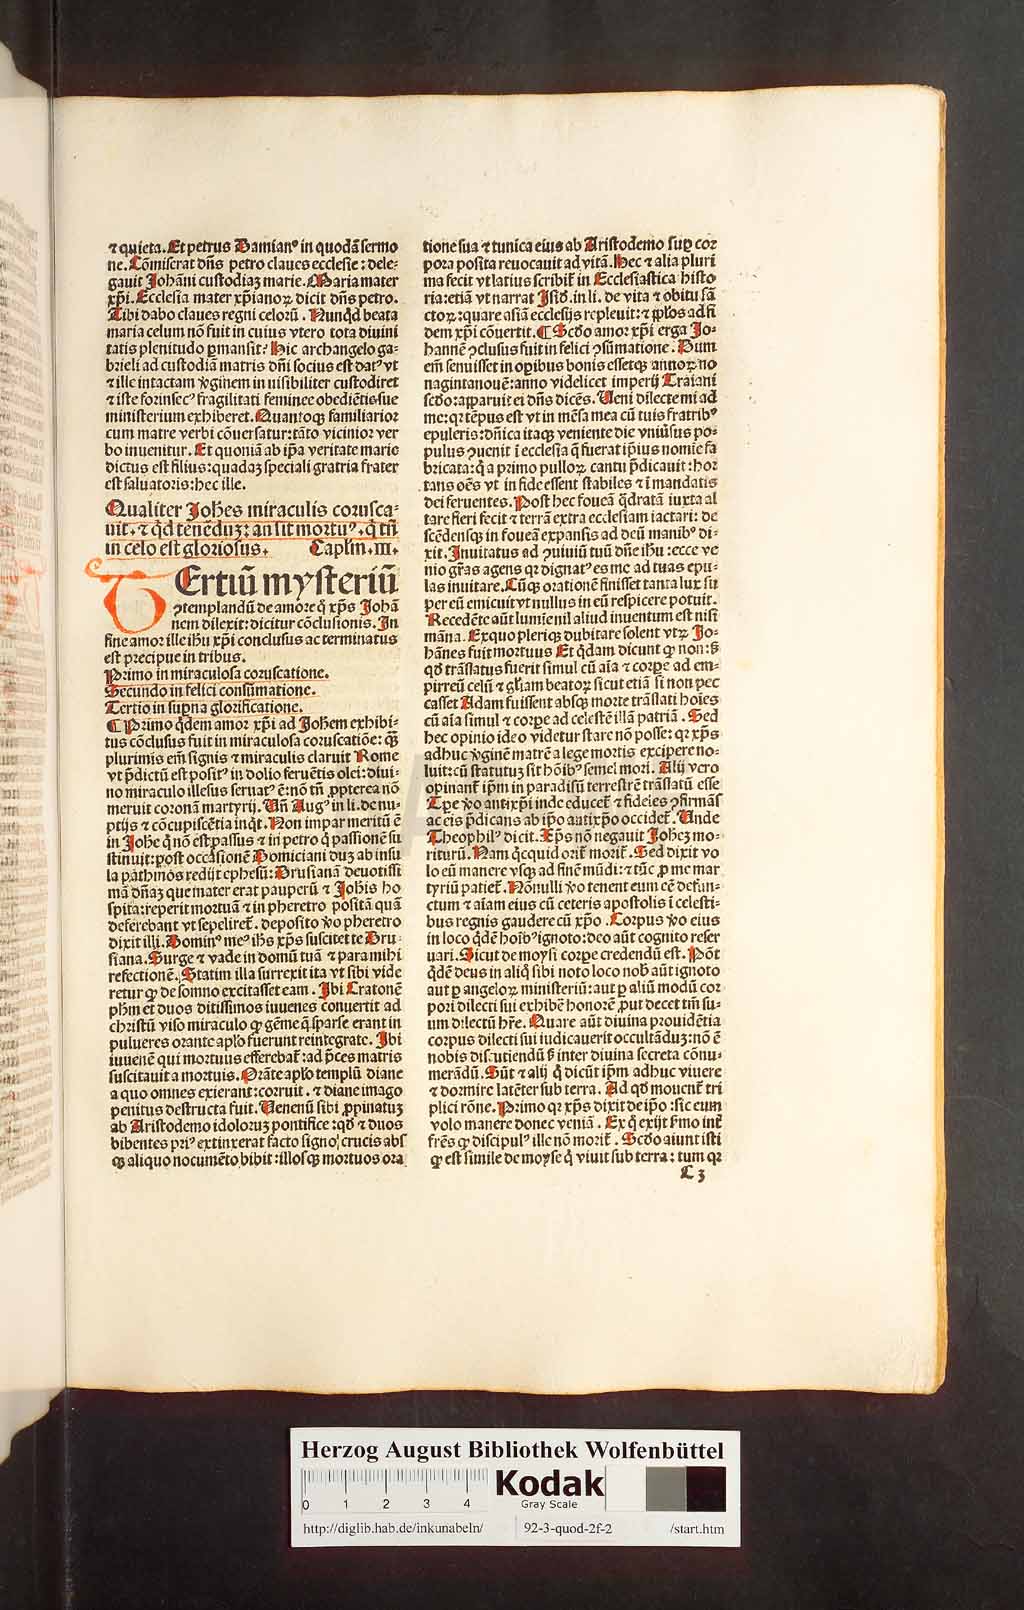 ⁊ quieta. Et petrus Damianꝰ in quodā sermo
ne. Cōmiserat dn̄s petro claues ecclesie: dele-
gauit Johāni custodiaꝫ marie. Maria mater
xp̄i. Ecclesia mater xp̄ianoꝝ dicit dn̄s petro.
Tibi dabo claues regni celorū. Nunqd̄ beata
maria celum nō fuit in cuius vtero tota diuini
tatis plenitudo ꝑmansit? Hic archangelo ga-
brieli ad custodiā matris dn̄i socius est datꝰ vt
⁊ ille intactam v̓ginem in uisibiliter custodiret
⁊ iste forinsecꝰ fragilitati feminee obediētis sue
ministerium exhiberet. Quantoqꝫ familiarior
cum matre verbi cōuersatur: tāto vicinior ver
bo inuenitur. Et quoniā ab ip̄a veritate marie
dictus est filius: quadaꝫ speciali gratria frater
est saluatoris: hec ille.
Qualiter Joh̄es miraculis corusca-
uit. ⁊ qd̄ tenēduꝫ: an sit mortuꝰ. q̄ tn̄
in celo est gloriosus. Capl̄m .III.
TErtiū mysteriū
ꝯtemplandū de amore q̄ xp̄s Johā
nem dilexit: dicitur cōclusionis. In
fine amor ille ihu xp̄i conclusus ac terminatus
est precipue in tribus.
Primo in miraculosa coruscatione.
Secundo in felici consūmatione.
Tertio in supna glorificatione.
¶ Primo q̄dem amor xp̄i ad Joh̄em exhibi-
tus cōclusus fuit in miraculosa coruscatiōe: qꝫ
plurimis em̄ signis ⁊ miraculis claruit Rome
vt p̄dictū est positꝰ in dolio feruētis olei: diui-
no miraculo illesus seruatꝰ ē: nō tn̄ ꝓpterea nō
meruit coronā martyrij. Un̄ Augꝰ in li. de nu-
ptijs ⁊ cōcupiscētia inq̄t. Non impar meritū ē
in Joh̄e q̄ nō est passus ⁊ in petro q̄ passionē su
stinuit: post occasionē Domiciani duꝫ ab insu
la pathmos redijt ephesū: Drusianā deuotissi
mā dn̄aꝫ que mater erat pauperū ⁊ Joh̄is ho
spita: reperit mortuā ⁊ in pheretro positā quā
deferebant vt sepeliret̄. deposito v̓o pheretro
dixit illi. Dominꝰ meꝰ ih̄s xp̄s suscitet te Dru-
siana. Surge ⁊ vade in domū tuā ⁊ para mihi
refectionē. Statim illa surrexit ita vt sibi vide
retur ꝙ de somno excitasset eam. Ibi Cratonē
ph̄m et duos ditissimos iuuenes conuertit ad
christū viso miraculo ꝙ gēme q̄ sparse erant in
pulueres orante apl̄o fuerunt reintegrate. Ibi
iuuenē qui mortuus efferebat̄: ad p̄ces matris
suscitauit a mortuis. Orāte apl̄o templū diane
a quo omnes exierant: corruit. ⁊ diane imago
penitus destructa fuit. Uenenū sibi ꝓpinatuꝫ
ab Aristodemo idoloruꝫ pontifice: qd̄ ⁊ duos
bibentes priꝰ extinxerat facto signo crucis absꝗ
qꝫ aliquo nocumēto bibit: illosqꝫ mortuos ora
tione sua ⁊ tunica eius ab Aristodemo suꝑ cor
pora posita reuocauit ad vitā. Hec ⁊ alia pluri
ma fecit vt latius scribit̄ in Ecclesiastica histo
ria: etiā vt narrat Isid̄. in li. de vita ⁊ obitu sā
ctoꝝ: quare asiā ecclesijs repleuit: ⁊ pp̄los ad fi
dem xp̄i cōuertit. ¶ Scd̄o amor xp̄i erga Jo-
hannē ꝯclusus fuit in felici ꝯsūmatione. Dum
em̄ senuisset in opibus bonis essetqꝫ annoꝝ no
nagintanouē: anno videlicet imperij Traiani
scd̄o: apparuit ei dn̄s dicēs. Ueni dilecte mi ad
me: qꝛ tēpus est vt in mēsa mea cū tuis fratribꝰ
epuleris: dn̄ica itaqꝫ veniente die vniūsus po-
pulus ꝯuenit ī ecclesia q̄ fuerat ip̄ius nomīe fa
bricata: q̄ a primo pulloꝝ cantu p̄dicauit: hor
tans oēs vt in fide essent stabiles ⁊ ī mandatis
dei feruentes. Post hec foueā q̄dratā iuxta al
tare fieri fecit ⁊ terrā extra ecclesiam iactari: de
scēdensqꝫ in foueā expansis ad deū manibꝰ di-
xit. Inuitatus ad ꝯuiuiū tuū dn̄e ihu: ecce ve
nio gr̄as agens qꝛ dignatꝰ es me ad tuas epu-
las inuitare. Cūqꝫ orationē finisset tanta lux su
per eū emicuit vt nullus in eū respicere potuit.
Recedēte aūt lumie nil aliud inuentum est nisi
māna. Exquo pleriqꝫ dubitare solent vtꝝ Jo-
hānes fuit mortuus Et q̄dam dicunt ꝙ non: s̄
qd̄ trāslatus fuerit simul cū aīa ⁊ corpe ad em-
pirreū celū ⁊ gl̄iam beatoꝝ sicut etiā si non pec
casset Adam fuissent absqꝫ morte trāslati hoīes
cū aīa simul ⁊ corpe ad celestē illā patriā. Sed
hec opinio ideo videtur stare nō posse: qꝛ xp̄s
adhuc v̓ginē matrē a lege mortis excipere no-
luit: cū statutuꝫ sit hōibꝰ semel mori. Alij vero
opinant̄ ip̄m in paradisū terrestrē trāslatū esse
Tpe v̓o antixp̄i inde educet̄ ⁊ fideles ꝯfirmās
ac eis p̄dicans ab ip̄o antixp̄o occidet̄. Unde
Theophilꝰ dicit. Xp̄s nō negauit Joheꝫ mo-
riturū. Nam q̄cquid orit̄ morit̄. Sed dixit vo
lo eū manere vsqꝫ ad finē mūdi: ⁊ tūc ꝓ me mar
tyriū patiet̄. Nōnulli v̓o tenent eum eē defun-
ctum ⁊ aīam eius cū ceteris apostolis ī celesti-
bus regnis gaudere cū xp̄o. Corpus v̓o eius
in loco q̄dē hoībꝰ ignoto: deo aūt cognito reser
uari. Sicut de moysi corpe credendū est. Pōt
q̄dē deus in aliq̄ sibi noto loco nob̄ aūt ignoto
aut ꝑ angeloꝝ ministeriū: aut ꝑ aliū modū cor
pori dilecti sui exhibē honorē ꝓut decet tm̄ su-
um dilectū hr̄e. Quare aūt diuina prouidētia
corpus dilecti sui iudicauerit occultāduꝫ: nō ē
nobis discutiendū s̄ inter diuina secreta cōnu-
merādū. Sūt ⁊ alij q̄ dicūt ip̄m adhuc viuere
⁊ dormire latēter sub terra. Ad qd̄ mouent̄ tri
plici rōne. Primo qꝛ xp̄s dixit de ip̄o: sic eum
volo manere donec veniā. Ex q̄ exijt s̓mo int̄
fr̄es ꝙ discipulꝰ ille nō morit̄. Scd̄o aiunt isti
ꝙ est simile de moyse q̄ viuit sub terra: tum qꝛ
C 3
Herzog August Bibliothek Wolfenbüttel
0 1 2 3 4
Kodak
Gray Scale
http://diglib.hab.de/inkunabeln/ 92-3-quod-2f-2 /start.htm